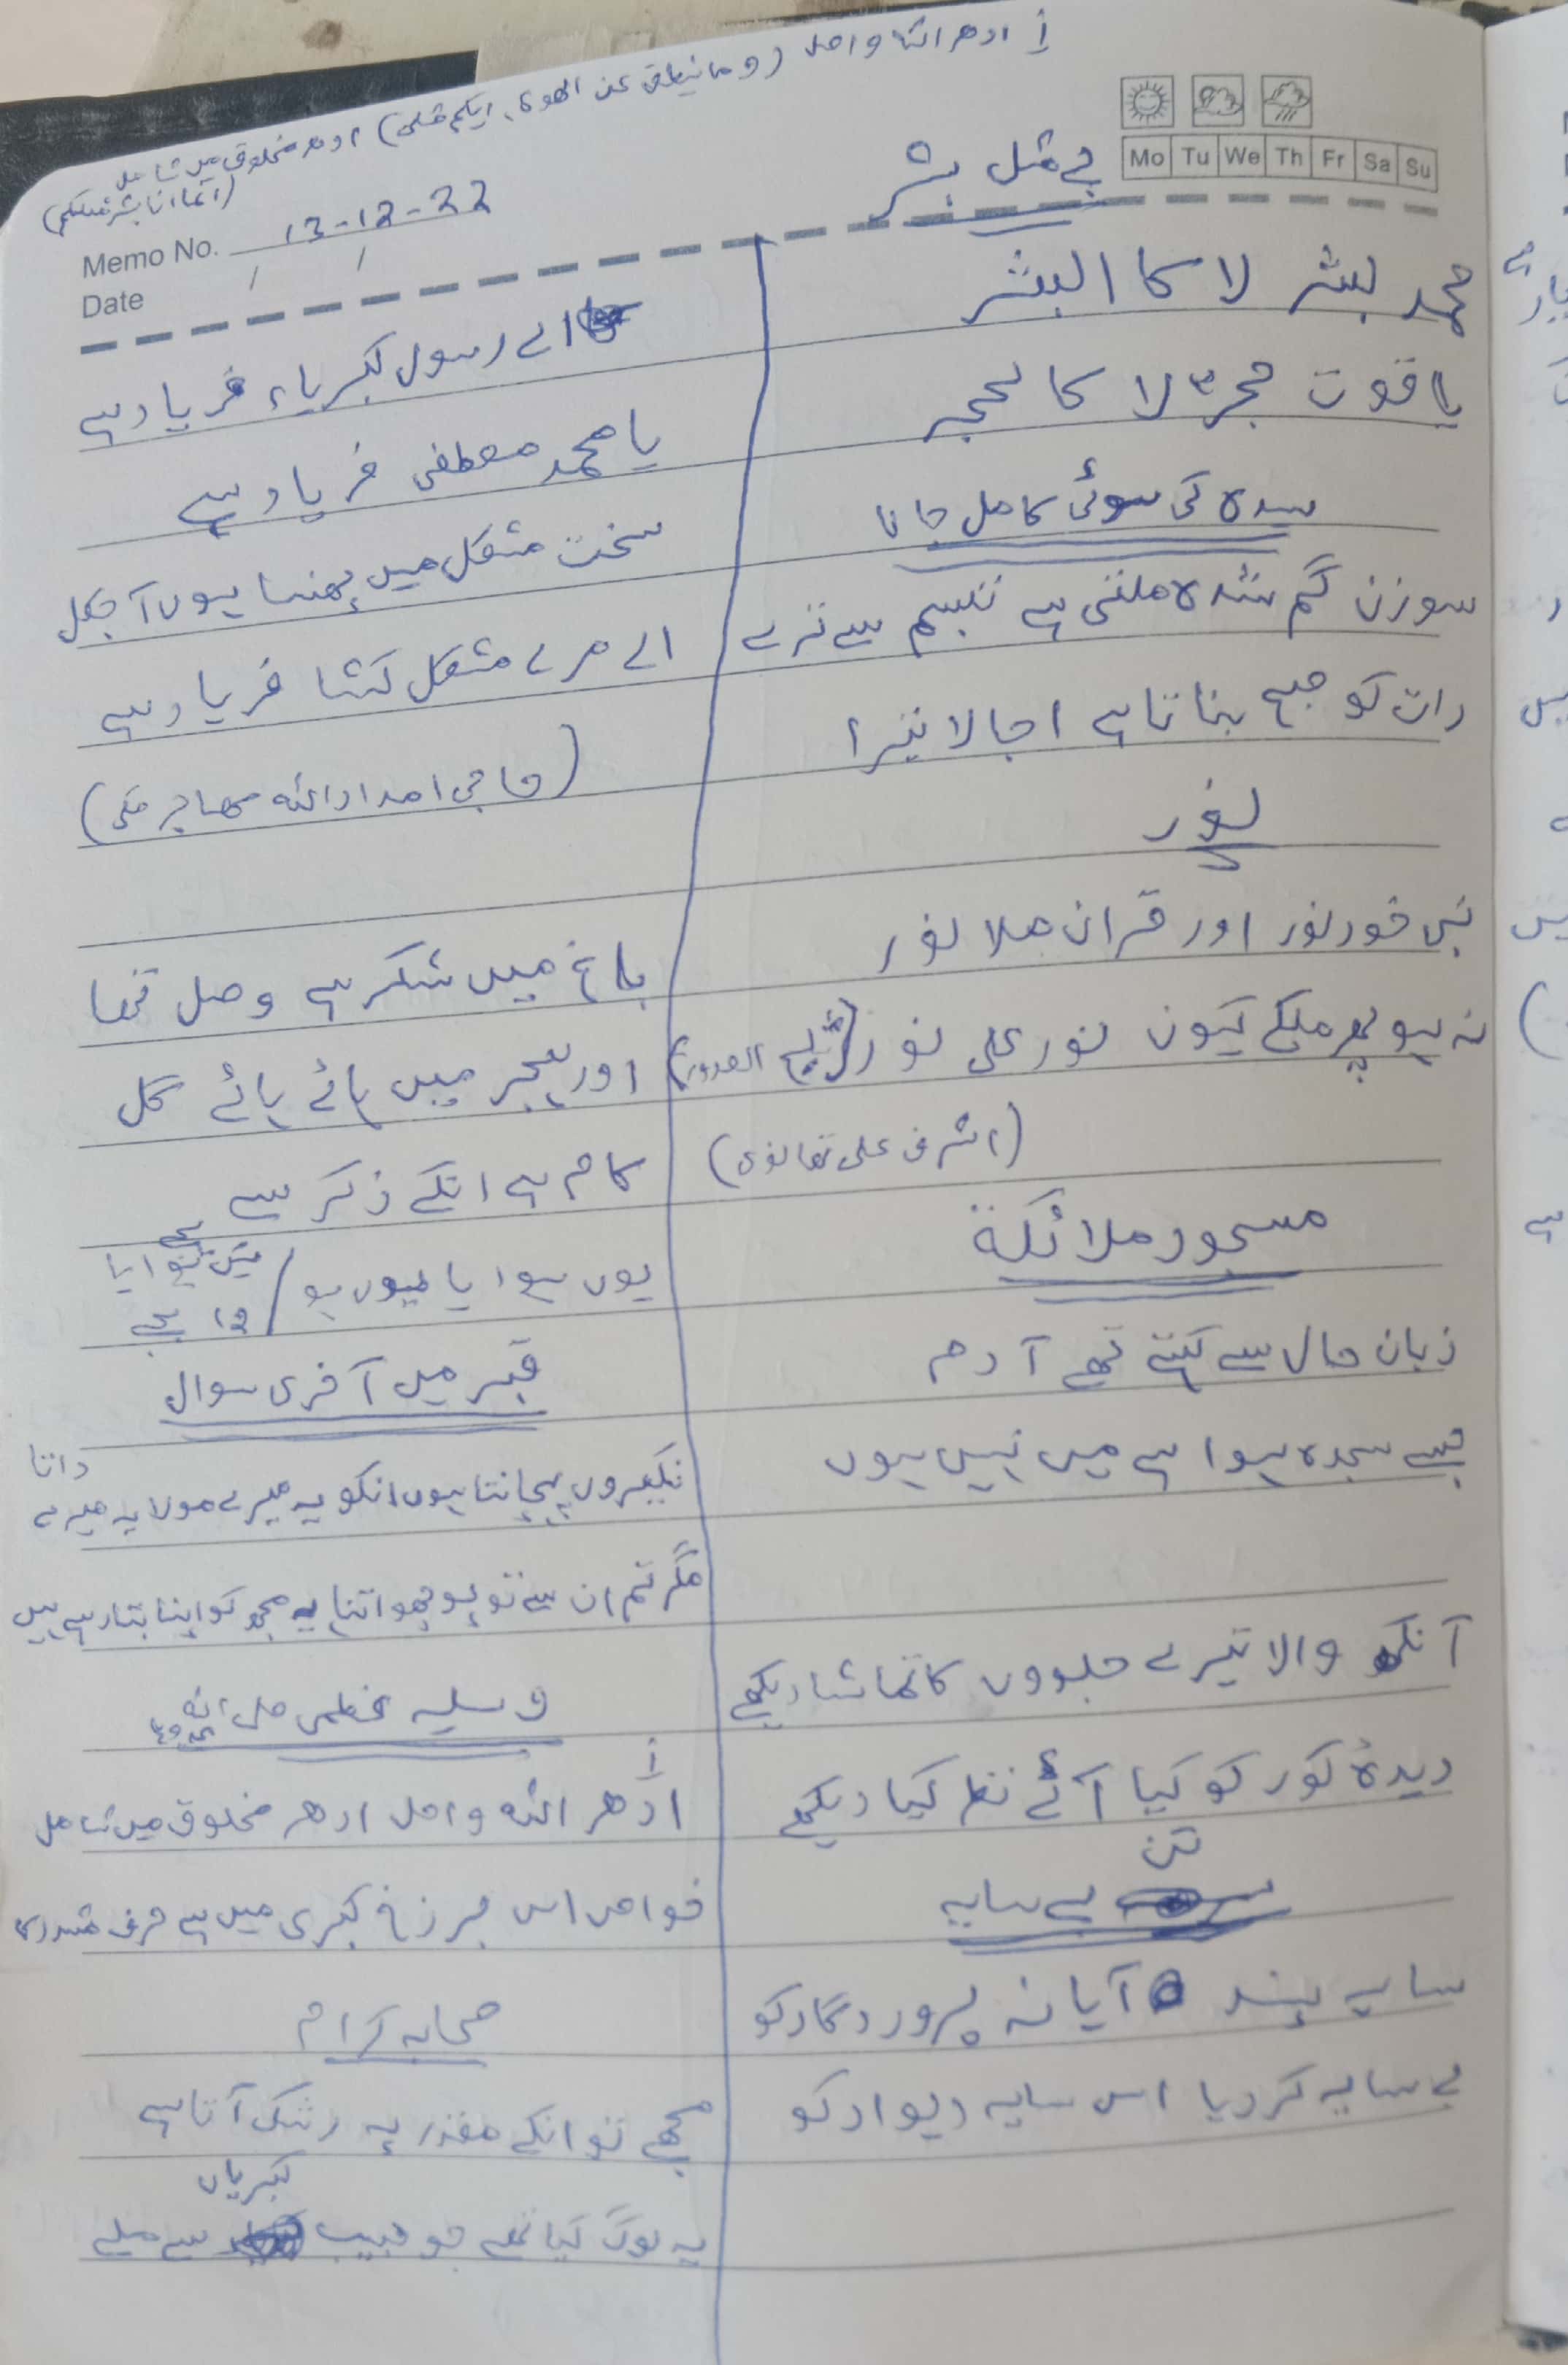 أ ادھر اللہ واصل (وما ینطق عن الھوی، ایکم مثلی) ادھر مخلوق میں شامل
(انما انا بشر مثلکم)
Mo Tu We Th Fr Sa Su
Memo No. 13-12-22
Date / /
بے مثل بشر
محمد بشر لا کا البشر
یاقوت حجر لا کا لحجر
سیدہ کی سوئی کا مل جانا
سوزن گم شدہ ملتی ہے تبسم سے ترے
رات کو صبح بناتا ہے اجالا تیرا
نور
نبی خود نور اور قرآن ملا نور
نہ ہو پھر ملکے کیوں نور علی نور
(اشرف علی تھانوی)
مسجود ملائکۃ
زبان حال سے کہتے تھے آدم
جسے سجدہ ہوا ہے میں نہیں ہوں
آنکھ والا تیرے جلووں کا تماشا دیکھے
دیدۂ کور کو کیا آئے نظر کیا دیکھے
تن
بے سایہ
سایہ پسند آیا نہ پروردگار کو
بے سایہ کر دیا اس سایہ دیوار کو
اے رسول کبریاء فریاد ہے
یا محمد مصطفی فریاد ہے
سخت مشکل میں پھنسا ہوں آجکل
اے مرے مشکل کشا فریاد ہے
(حاجی امداد اللہ مہاجر مکی)
باغ میں شکر ہے وصل تھا
اور ہجر میں ہائے ہائے گل
کام ہے انکے ذکر سے
یوں ہوا یا یوں ہو
قبر میں آخری سوال
نکیروں پہچانتا ہوں انکو یہ میرے مولا یہ میرے داتا
مگر تم ان سے تو پوچھو اتنا یہ مجھ کو اپنا بتا رہے ہیں
وسلیہ عظمی
أ
ادھر اللہ واصل ادھر مخلوق میں شامل
خواص اس برزخ کبری میں ہے حرف مشدد کا
صحابہ کرام
مجھے تو انکے مقدر پہ رشک آتا ہے
کبریاں
یہ لوگ کیا تھے جو حبیب سے ملے